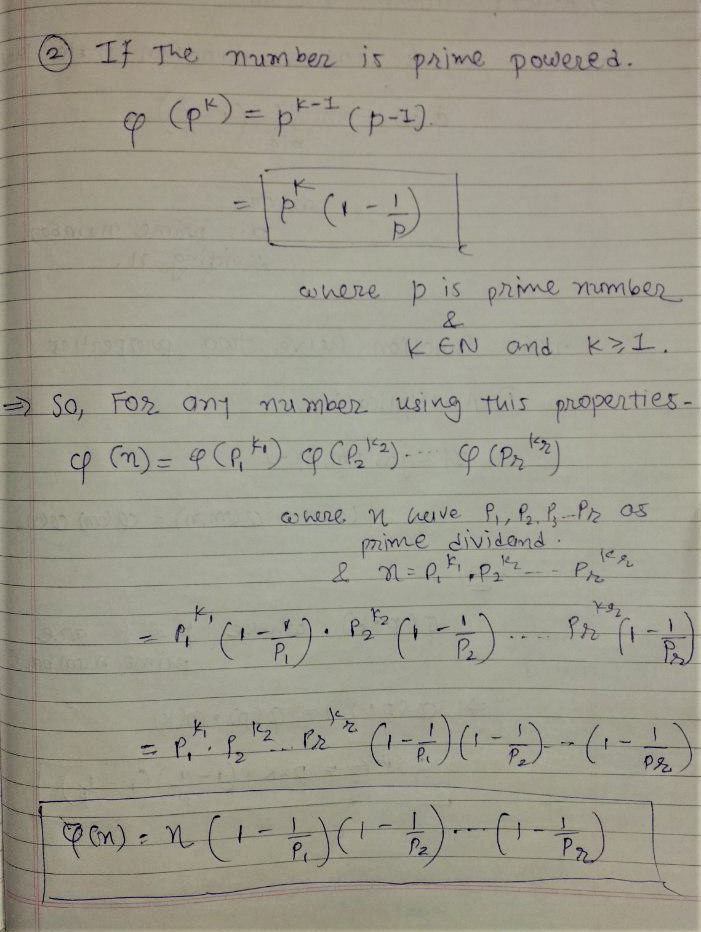 ② If The number is prime powered.
φ (p^k) = p^k-1 (p-1).
= p^k (1 - 1/p)
where p is prime number
&
K ∈ N and k ≥ 1.
⇒ So, For any number using this properties-
φ (n) = φ(P₁^k₁) φ(P₂^k₂).... φ (Pr^kr)
where n have P₁, P₂, P₃...Pr as
prime dividend.
& n = P₁^k₁ . P₂^k₂ --- Pr^kr
= P₁^k₁ (1 - 1/P₁) . P₂^k₂ (1 - 1/P₂) .... Pr^kr (1 - 1/Pr)
= P₁^k₁ . P₂^k₂ ... Pr^kr (1 - 1/P₁) (1 - 1/P₂) --- (1 - 1/Pr)
φ(n) = n (1 - 1/P₁) (1 - 1/P₂) --- (1 - 1/Pr)